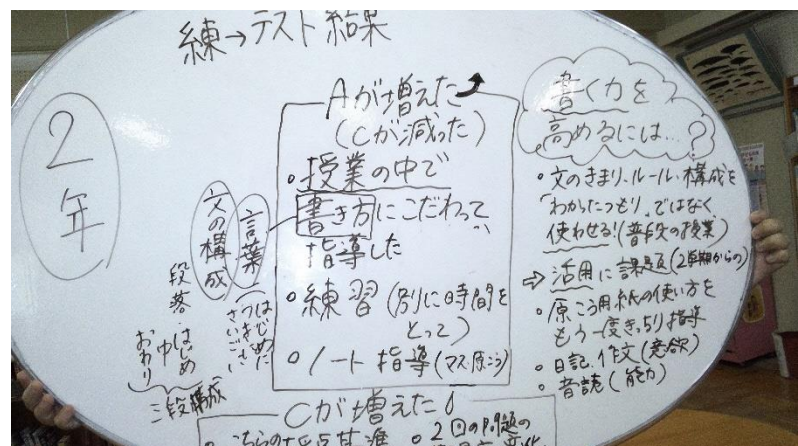 練→テスト結果
2年
Aが増えた
(Cが減った)
・授業の中で
書き方にこだわって、
指導した
・練習(別に時間を
とって)
・ノート指導(マス・原こう)
言葉
(はじめに
つぎに
さいごに
文の構成
段落・はじめ
中
おわり
三段構成
書く力を
高めるには…?
・文のきまり、ルール・構成を
「わかったつもり」ではなく
使わせる!(普段の授業)
⇒活用に課題(2学期からの)
・原こう用紙の使い方を
もう一度きっちり指導
・日記、作文(意欲)
・音読(能力)
Cが増えた
・こちらの採点基準
・2回の問題の